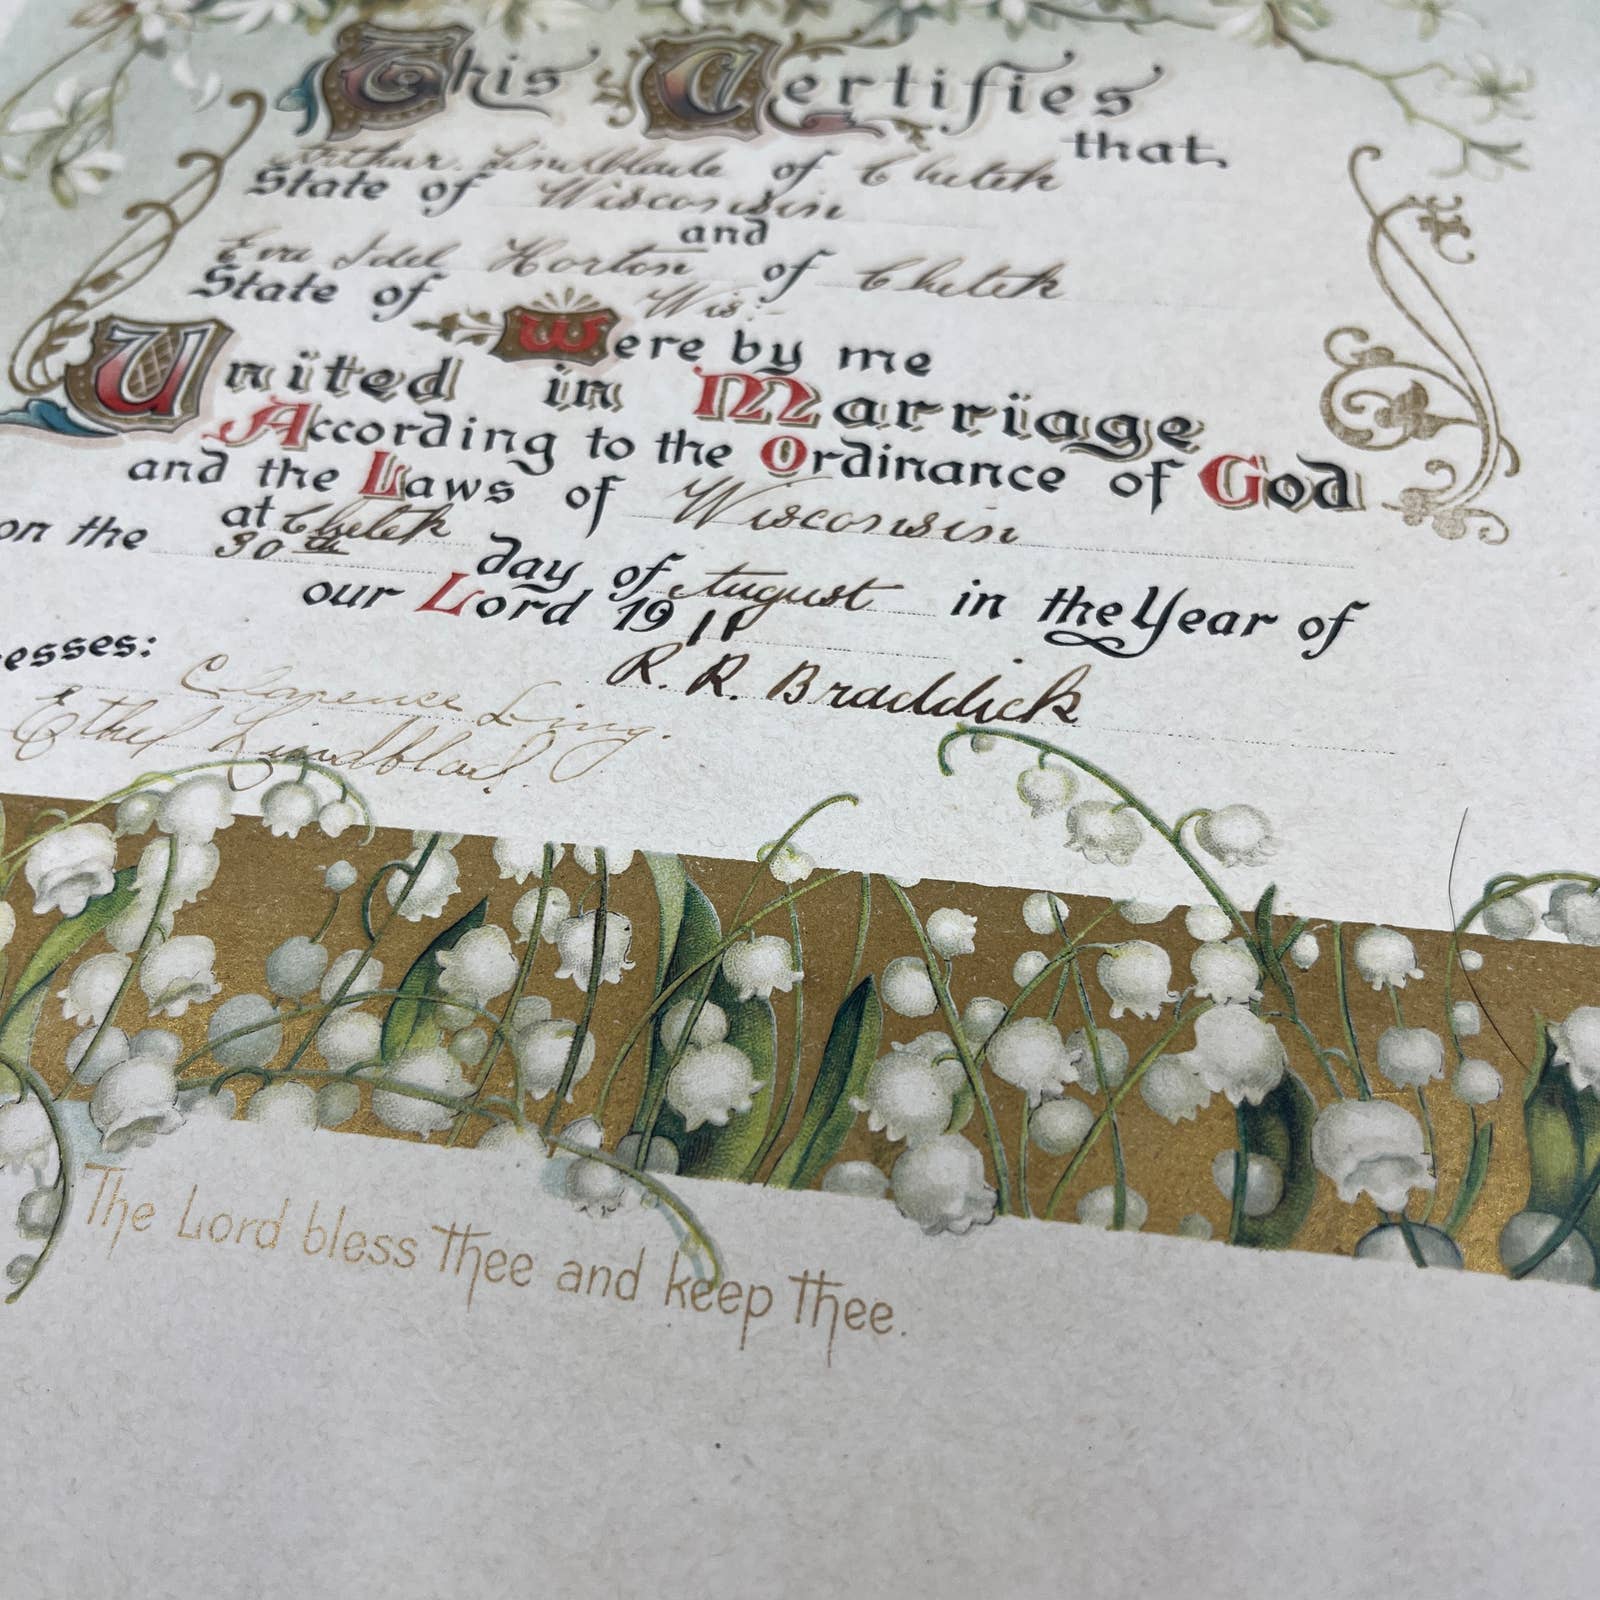 This Certifies
that,
Arthur Lindblade of Chetek
State of Wisconsin
and
Eva Idel Horton of Chetek
State of Wis:-
Were by me
United in Marriage
According to the Ordinance of God
and the Laws of Wisconsin
at Chetek
on the 30th day of August in the Year of
our Lord 1911
esses:
R. R. Braddick
Clarence Ling.
Ethel Lindblad.
The Lord bless Thee and keep Thee.